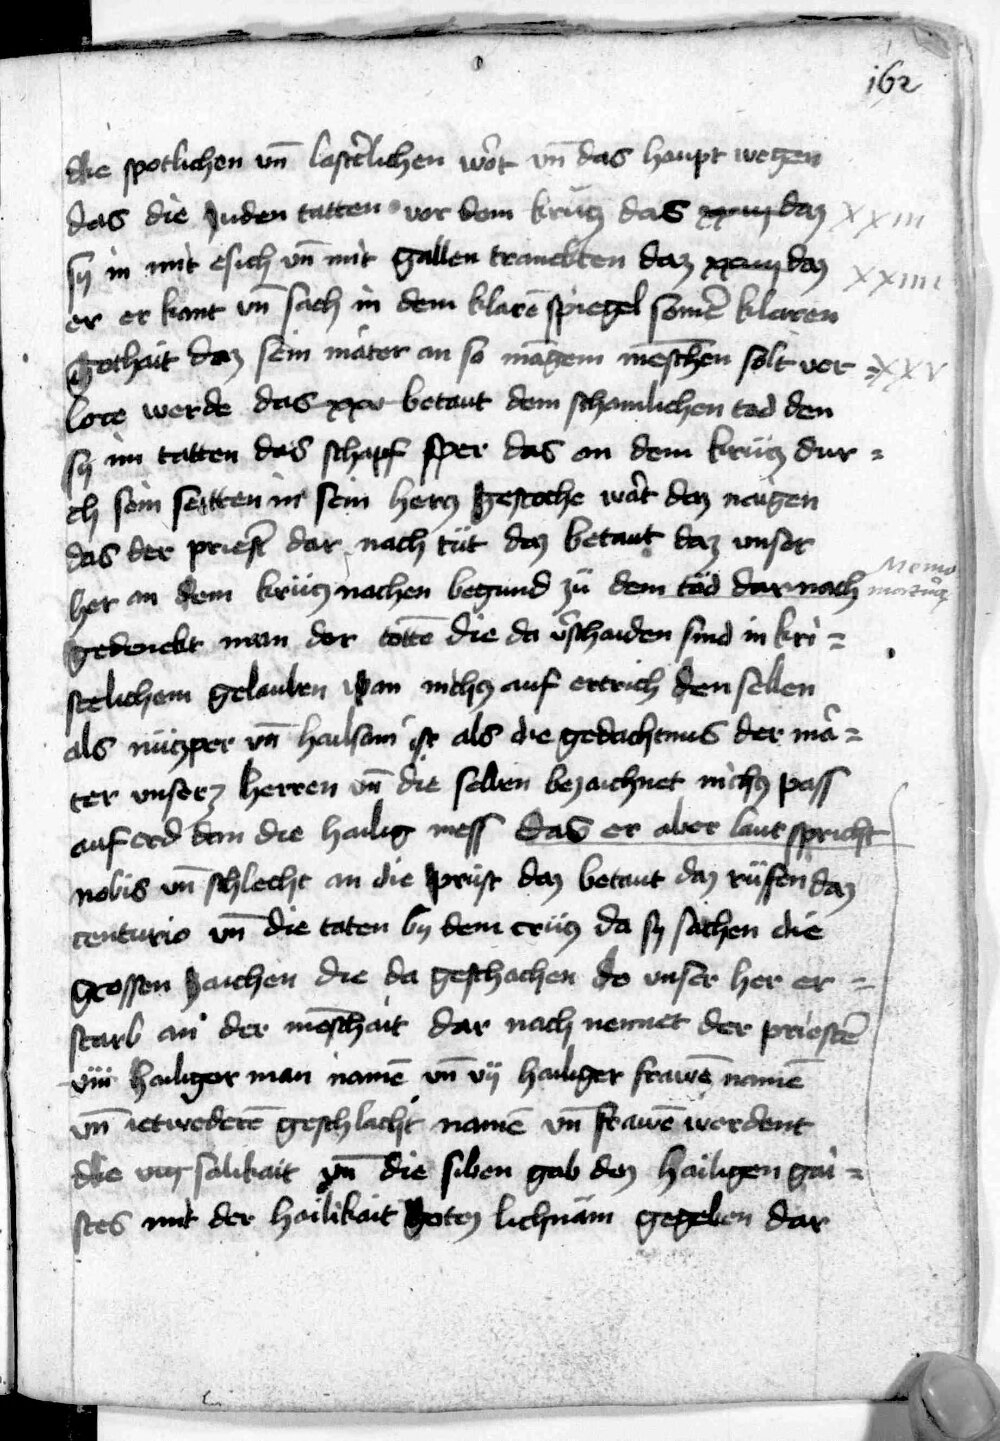 162
die spotlichen vn̄ lasterlichen wort vn̄ das haupt wegen
das die Juden tatten vor dem krütz das xxiij daz xxiii
sy in mit esich vn̄ mit gallen tranckten daz xxiiij daz xxiiii
er er kant vn̄ sach in dem klarē spiegel seinē klaren
Gothait daz sein mater an so mangem menschen solt ver = xxv
lore werde das xxv betaut dem schamlichen tod den
sy im tatten das scharpf sper das an dem krütz dur =
ch sein seitten in sein hertz gestoche wart daz naigen
das der priest dar nach tüt daz betaut daz vnser
her an dem krütz nachen begund zü dem tod dar nach Memo
gedenckt man der tottē die da v̄schaiden sind in kri =
stelichem gelauben wan nichtz auf ertrich den sellen
als nützper vn̄ hailsam ist als die gedachtnus der ma =
ter vnserz herren vn̄ die selben bezaichnet nichtz pass
auf erd dan die hailig mess das er aber laut spricht
nobis vn̄ schlecht an die prust daz betaut daz rüffen daz
centurio vn̄ die taten by dem crütz da sy sachen die
grossen zaichen die da geschachen do vnser her er =
starb an der menschait dar nach nennet der priestē
viii hailiger man namē vn̄ vij hailiger frawē namē
vn̄ ietwederē geschlächt namē vn̄ frawē werdent
die viij salikait vn̄ die siben gab dez hailigen gai =
stes mit der hailikait gotz lichnam gegeben dar